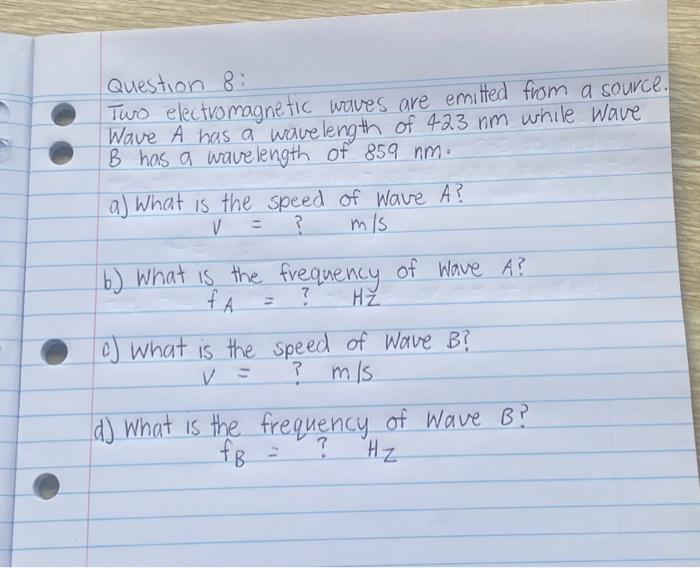 Question 8:
Two electromagnetic waves are emitted from a source.
Wave A has a wavelength of 423 nm while Wave
B has a wavelength of 859 nm.
a) What is the speed of Wave A?
v = ? m/s
b) What is the frequency of Wave A?
fA = ? Hz
c) What is the speed of Wave B?
v = ? m/s
d) What is the frequency of Wave B?
fB = ? Hz